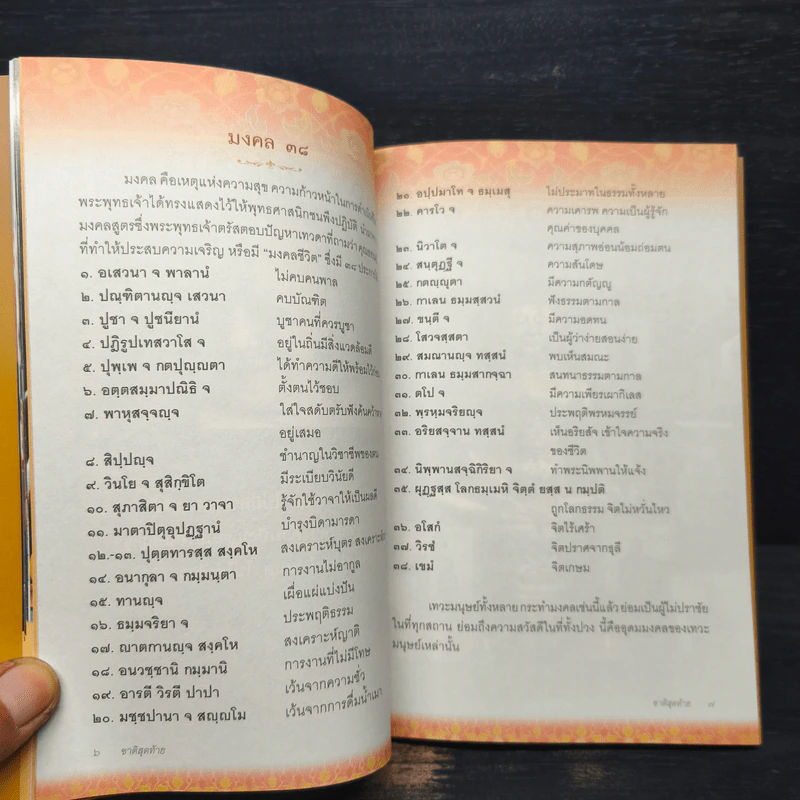 มงคล ๓๘
มงคล คือเหตุแห่งความสุข ความก้าวหน้าในการดำเนินชีวิต
พระพุทธเจ้าได้ทรงแสดงไว้ให้พุทธศาสนิกชนพึงปฏิบัติ
มงคลสูตรซึ่งพระพุทธเจ้าตรัสตอบปัญหาเทวดาที่ถามว่า
ที่ทำให้ประสบความเจริญ หรือมี “มงคลชีวิต” ซึ่งมี ๓๘
๑. อเสวนา จ พาลานํ ไม่คบคนพาล
๒. ปณฺฑิตานญฺจ เสวนา คบบัณฑิต
๓. ปูชา จ ปูชนียานํ บูชาคนที่ควรบูชา
๔. ปฏิรูปเทสวาโส จ อยู่ในถิ่นมีสิ่งแวดล้อมดี
๕. ปุพฺเพ จ กตปุญฺญตา ได้ทำความดีให้พร้อมไว้
๖. อตฺตสมฺมาปณิธิ จ ตั้งตนไว้ชอบ
๗. พาหุสจฺจญฺจ ใส่ใจสดับตรับฟังค้นคว้า
อยู่เสมอ
๘. สิปฺปญฺจ ชำนาญในวิชาชีพของตน
๙. วินโย จ สุสิกฺขิโต มีระเบียบวินัยดี
๑๐. สุภาสิตา จ ยา วาจา รู้จักใช้วาจาให้เป็นผลดี
๑๑. มาตาปิตุอุปฏฺฐานํ บำรุงบิดามารดา
๑๒.-๑๓. ปุตฺตทารสฺส สงฺคโห สงเคราะห์บุตร สงเคราะห์
๑๔. อนากุลา จ กมฺมนฺตา การงานไม่อากูล
๑๕. ทานญฺจ เผื่อแผ่แบ่งปัน
๑๖. ธมฺมจริยา จ ประพฤติธรรม
๑๗. ญาตกานญฺจ สงฺคโห สงเคราะห์ญาติ
๑๘. อนวชฺชานิ กมฺมานิ การงานที่ไม่มีโทษ
๑๙. อารตี วิรตี ปาปา เว้นจากความชั่ว
๒๐. มชฺชปานา จ สญฺญโม เว้นจากการดื่มน้ำเมา
๖ ชาติสุดท้าย
๒๑. อปฺปมาโท จ ธมฺเมสุ ไม่ประมาทในธรรมทั้งหลาย
๒๒. คารโว จ ความเคารพ ความเป็นผู้รู้จัก
คุณค่าของบุคคล
๒๓. นิวาโต จ ความสุภาพอ่อนน้อมถ่อมตน
๒๔. สนฺตุฏฺฐี จ ความสันโดษ
๒๕. กตญฺญุตา มีความกตัญญู
๒๖. กาเลน ธมฺมสฺสวนํ ฟังธรรมตามกาล
๒๗. ขนฺตี จ มีความอดทน
๒๘. โสวจสฺสตา เป็นผู้ว่าง่ายสอนง่าย
๒๙. สมณานญฺจ ทสฺสนํ พบเห็นสมณะ
๓๐. กาเลน ธมฺมสากจฺฉา สนทนาธรรมตามกาล
๓๑. ตโป จ มีความเพียรเผากิเลส
๓๒. พฺรหฺมจริยญฺจ ประพฤติพรหมจรรย์
๓๓. อริยสจฺจาน ทสฺสนํ เห็นอริยสัจ เข้าใจความจริง
ของชีวิต
๓๔. นิพฺพานสจฺฉิกิริยา จ ทำพระนิพพานให้แจ้ง
๓๕. ผุฏฺฐสฺส โลกธมฺเมหิ จิตฺตํ ยสฺส น กมฺปติ
ถูกโลกธรรม จิตไม่หวั่นไหว
๓๖. อโสกํ จิตไร้เศร้า
๓๗. วิรชํ จิตปราศจากธุลี
๓๘. เขมํ จิตเกษม
เทวะมนุษย์ทั้งหลาย กระทำมงคลเช่นนี้แล้ว ย่อมเป็นผู้ไม่ปราชัย
ในที่ทุกสถาน ย่อมถึงความสวัสดีในที่ทั้งปวง นี้คืออุดมมงคลของเทวะ
มนุษย์เหล่านั้น
ชาติสุดท้าย ๗